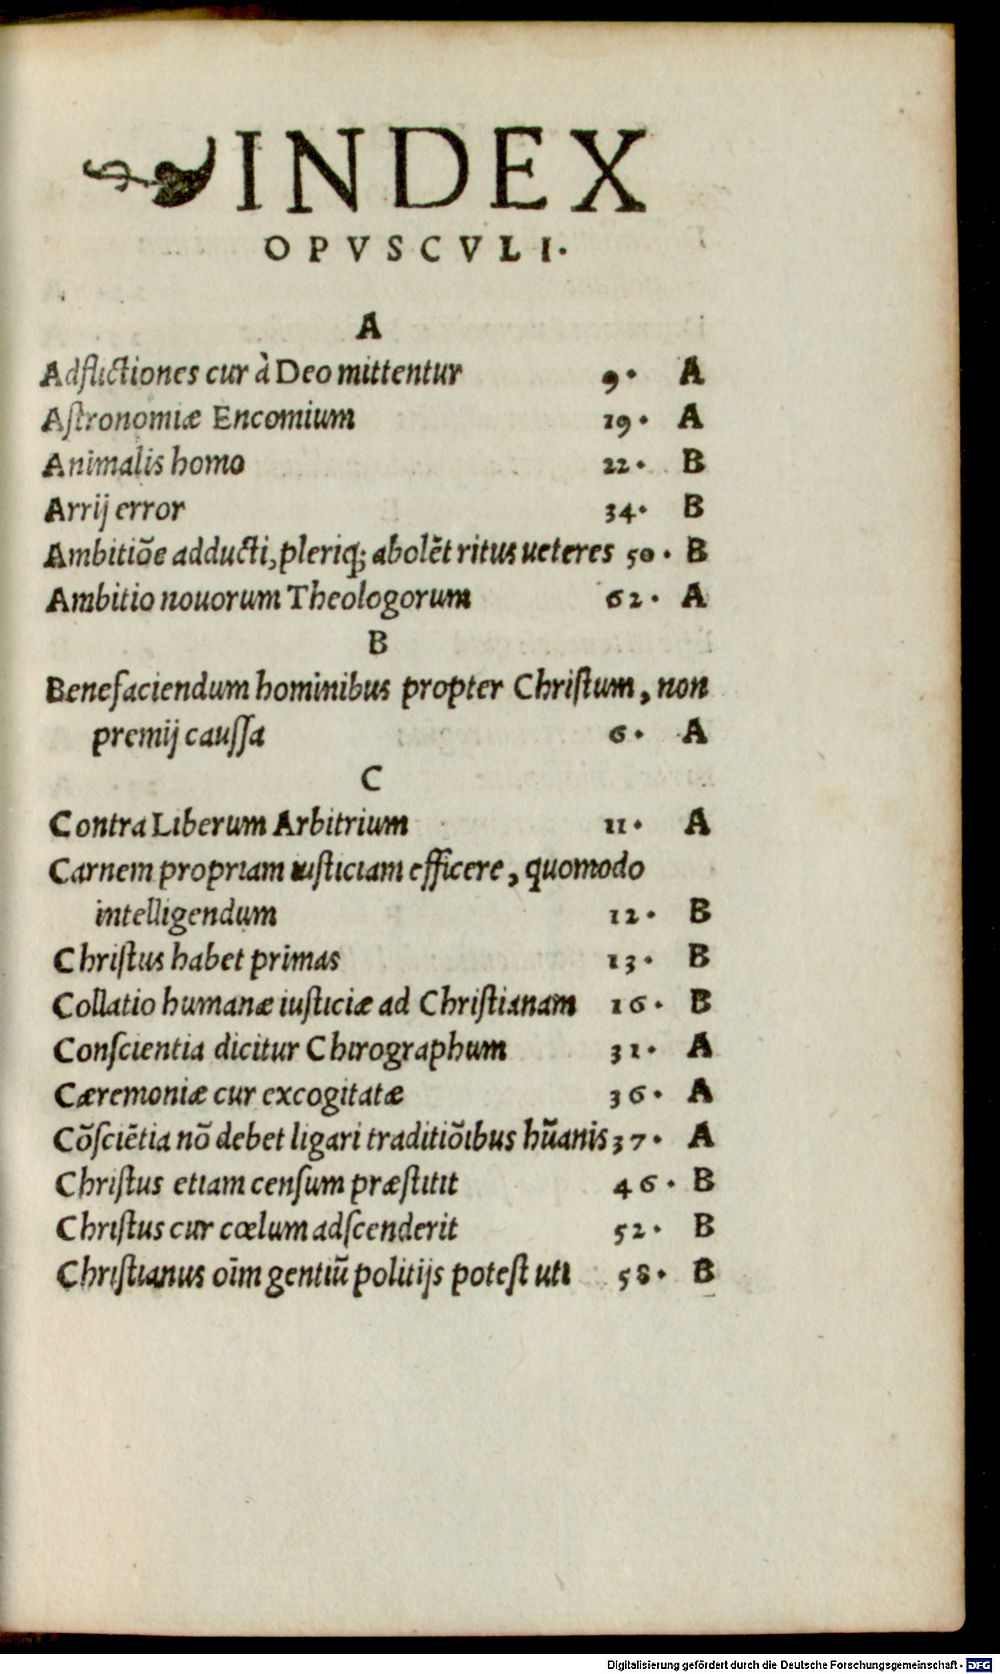 INDEX
OPVSCVLI.
A
Adflictiones cur à Deo mittentur 9. A
Aſtronomiæ Encomium 19. A
Animalis homo 22. B
Arrij error 34. B
Ambitiõe adducti, pleriq; abolẽt ritus ueteres 50. B
Ambitio nouorum Theologorum 62. A
B
Benefaciendum hominibus propter Chriſtum, non
premij cauſſa 6. A
C
Contra Liberum Arbitrium 11. A
Carnem propriam iuſticiam efficere, quomodo
intelligendum 12. B
Chriſtus habet primas 13. B
Collatio humanæ iuſticiæ ad Chriſtianam 16. B
Conſcientia dicitur Chirographum 31. A
Cæremoniæ cur excogitatæ 36. A
Cõſciẽtia nõ debet ligari traditiõibus hũanis 37. A
Chriſtus etiam cenſum præſtitit 46. B
Chriſtus cur cœlum adſcenderit 52. B
Chriſtianus oĩm gentiũ politijs poteſt uti 58. B
Digitalisierung gefördert durch die Deutsche Forschungsgemeinschaft - DFG